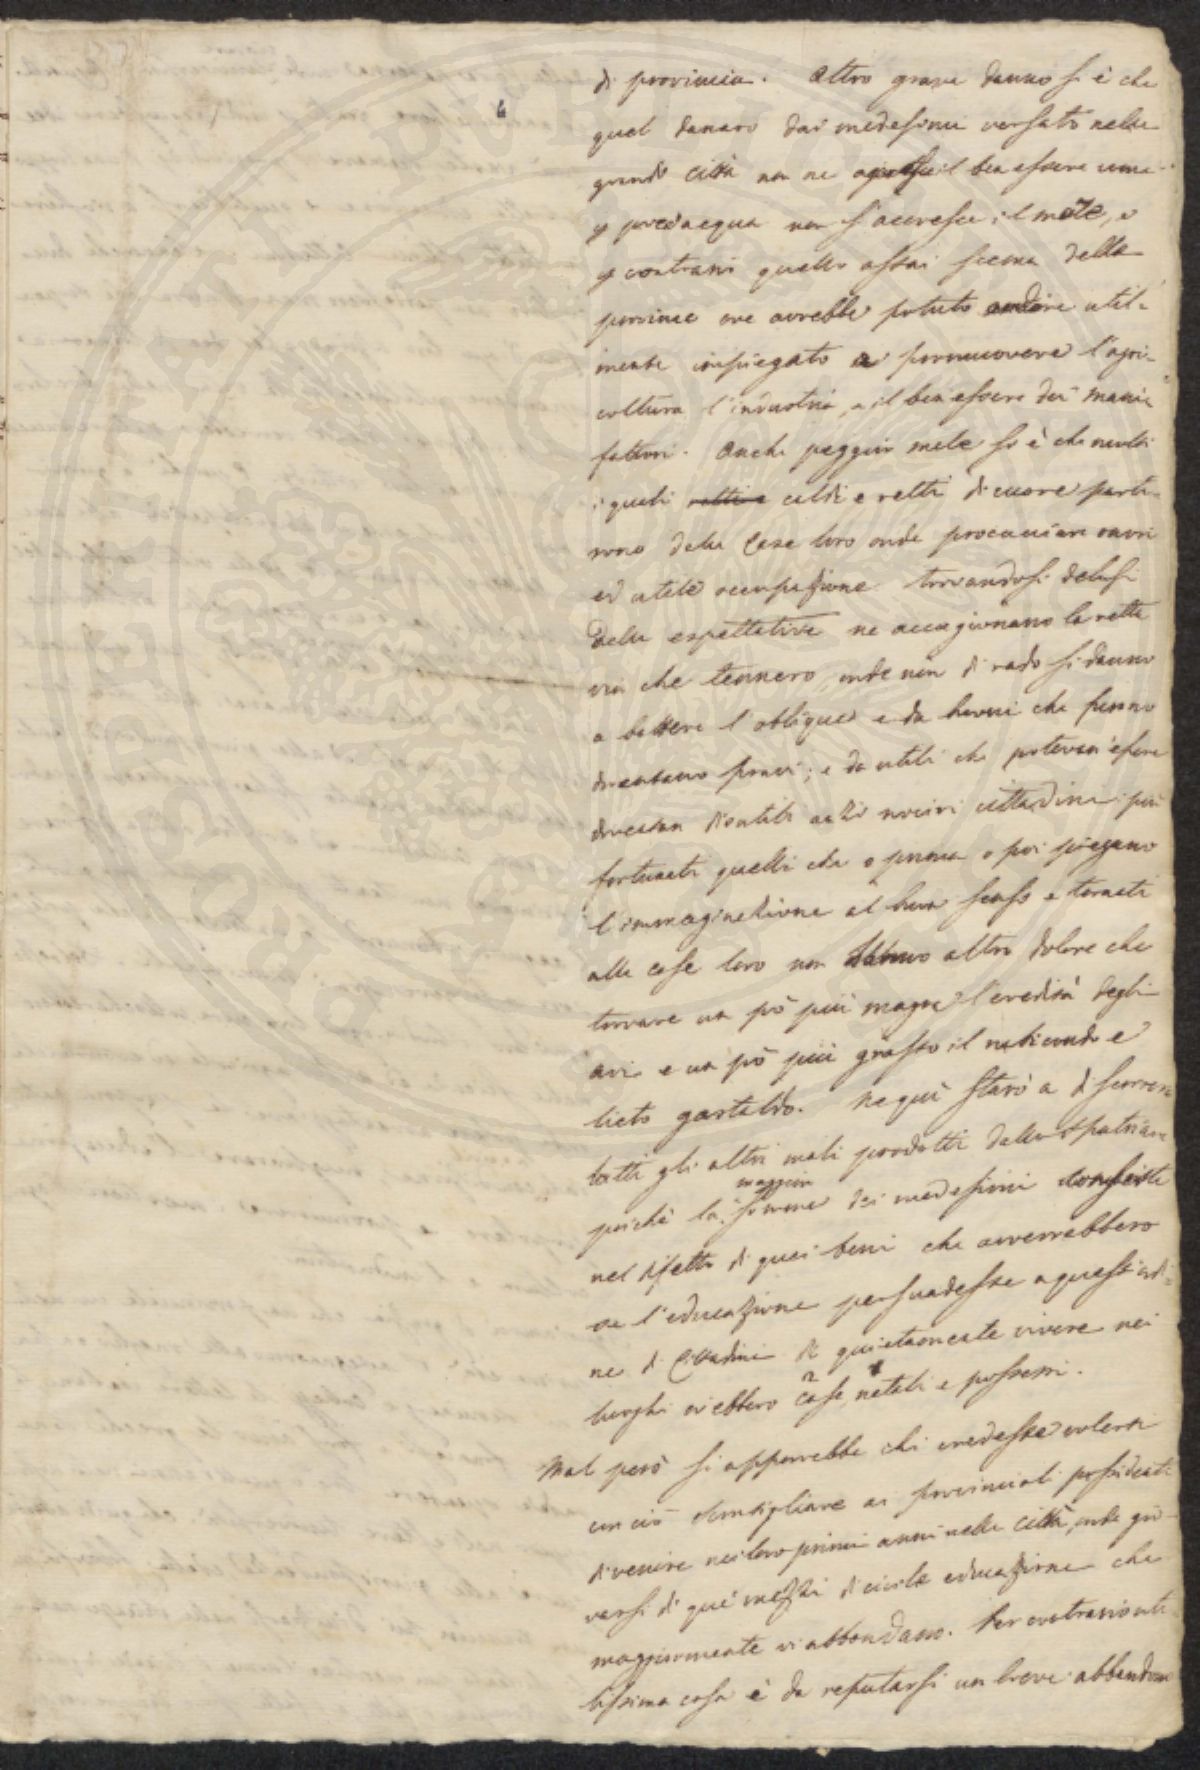 di provincia. Altro grave danno si è che
quel danaro dai medesimi versato nelle
grandi città non ne il ben essere come
p poco d'acqua non s'accresce il mare, e
p contrario quello assai scema delle
provincie ove avrebbe potuto andare util-
mente impiegato a promuovere l'agri-
coltura l'industria, e il ben essere dei mani-
fattori. Anche peggior male si è che molti
i quali caldi e retti di cuore parti-
rono dalle Case loro onde procacciare onori
ed utile occupazione trovandosi delusi
delle espettative ne accagionano la retta
via che tennero, onde non di rado si danno
a battere l'obliqua e da buoni che furono
diventano pravi; e da utili che potevan essere
diventan disutili anzi nocivi cittadini: più
fortunati quelli che o prima o poi piegano
l'immaginazione al buon senso e tornati
alle case loro non hanno altro dolore che
trovare un pò più magra l'eredità degli
avi e un pò più grasso il rubicondo e
lieto gastaldo. Ne quì starò a discorrere
tutti gli altri mali prodotti dallo spatriare
maggior
poichè la somma dei medesimi consiste
nel difetto di quei beni che avverrebbero
se l'educazione persuadesse a quest'ordi-
ne di Cittadini di quietamente vivere nei
luoghi ov'ebbero case, natali e possessi.
Mal però si apporrebbe chi credesse volersi
con ciò sconsigliare ai provinciali possidenti
di venire nei loro primi anni nelle città, onde gio-
varsi di quei mezzi di civile educazione che
maggiormente vi abbondano. Per contrario uti-
lissima cosa è da reputarsi un breve abbandono